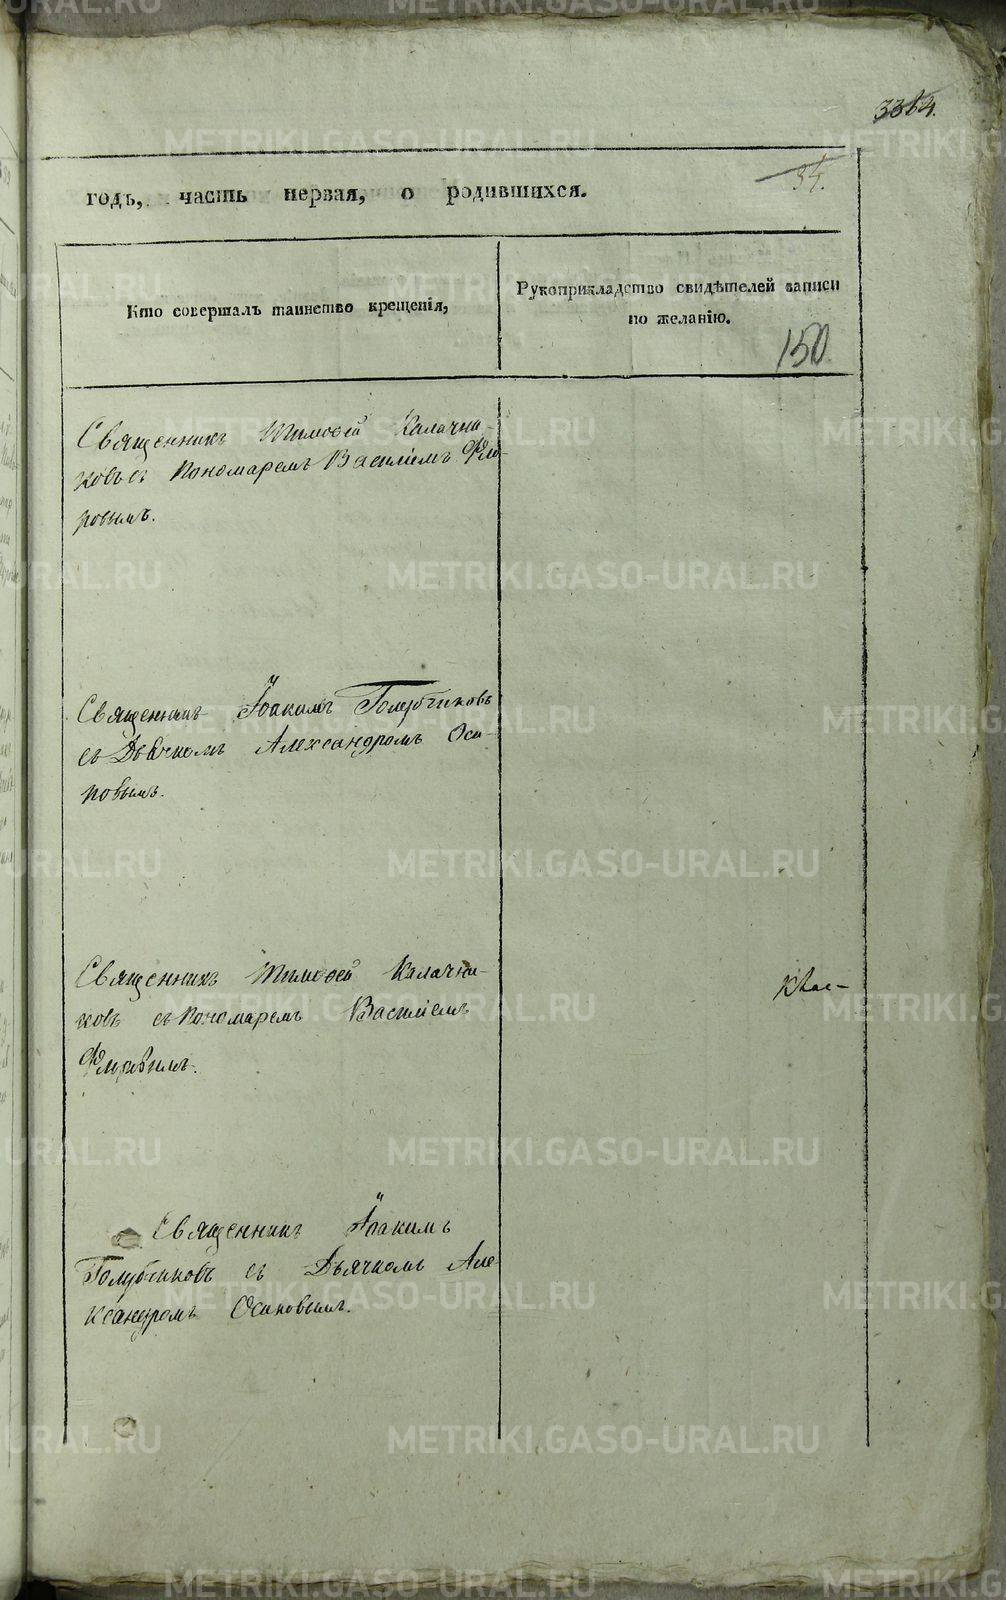 34.
годъ, часть первая, о родившихся.
Кто совершалъ таинство крещенія,
Рукоприкладство свидѣтелей записи
по желанію.
150
Священникъ Тимоѳей Калачни-
ковъ съ Пономаремъ Василіемъ Фло-
ровымъ.
Священникъ Іоакимъ Голубчиковъ
съ Дьячкомъ Александромъ Оси-
повымъ.
Священникъ Тимоѳей Калачни-
ковъ съ Пономаремъ Василіемъ
Флоровымъ.
Священникъ Іоакимъ
Голубчиковъ съ Дьячкомъ Але-
ксандромъ Осиповымъ.
METRIKI.GASO-URAL.RU